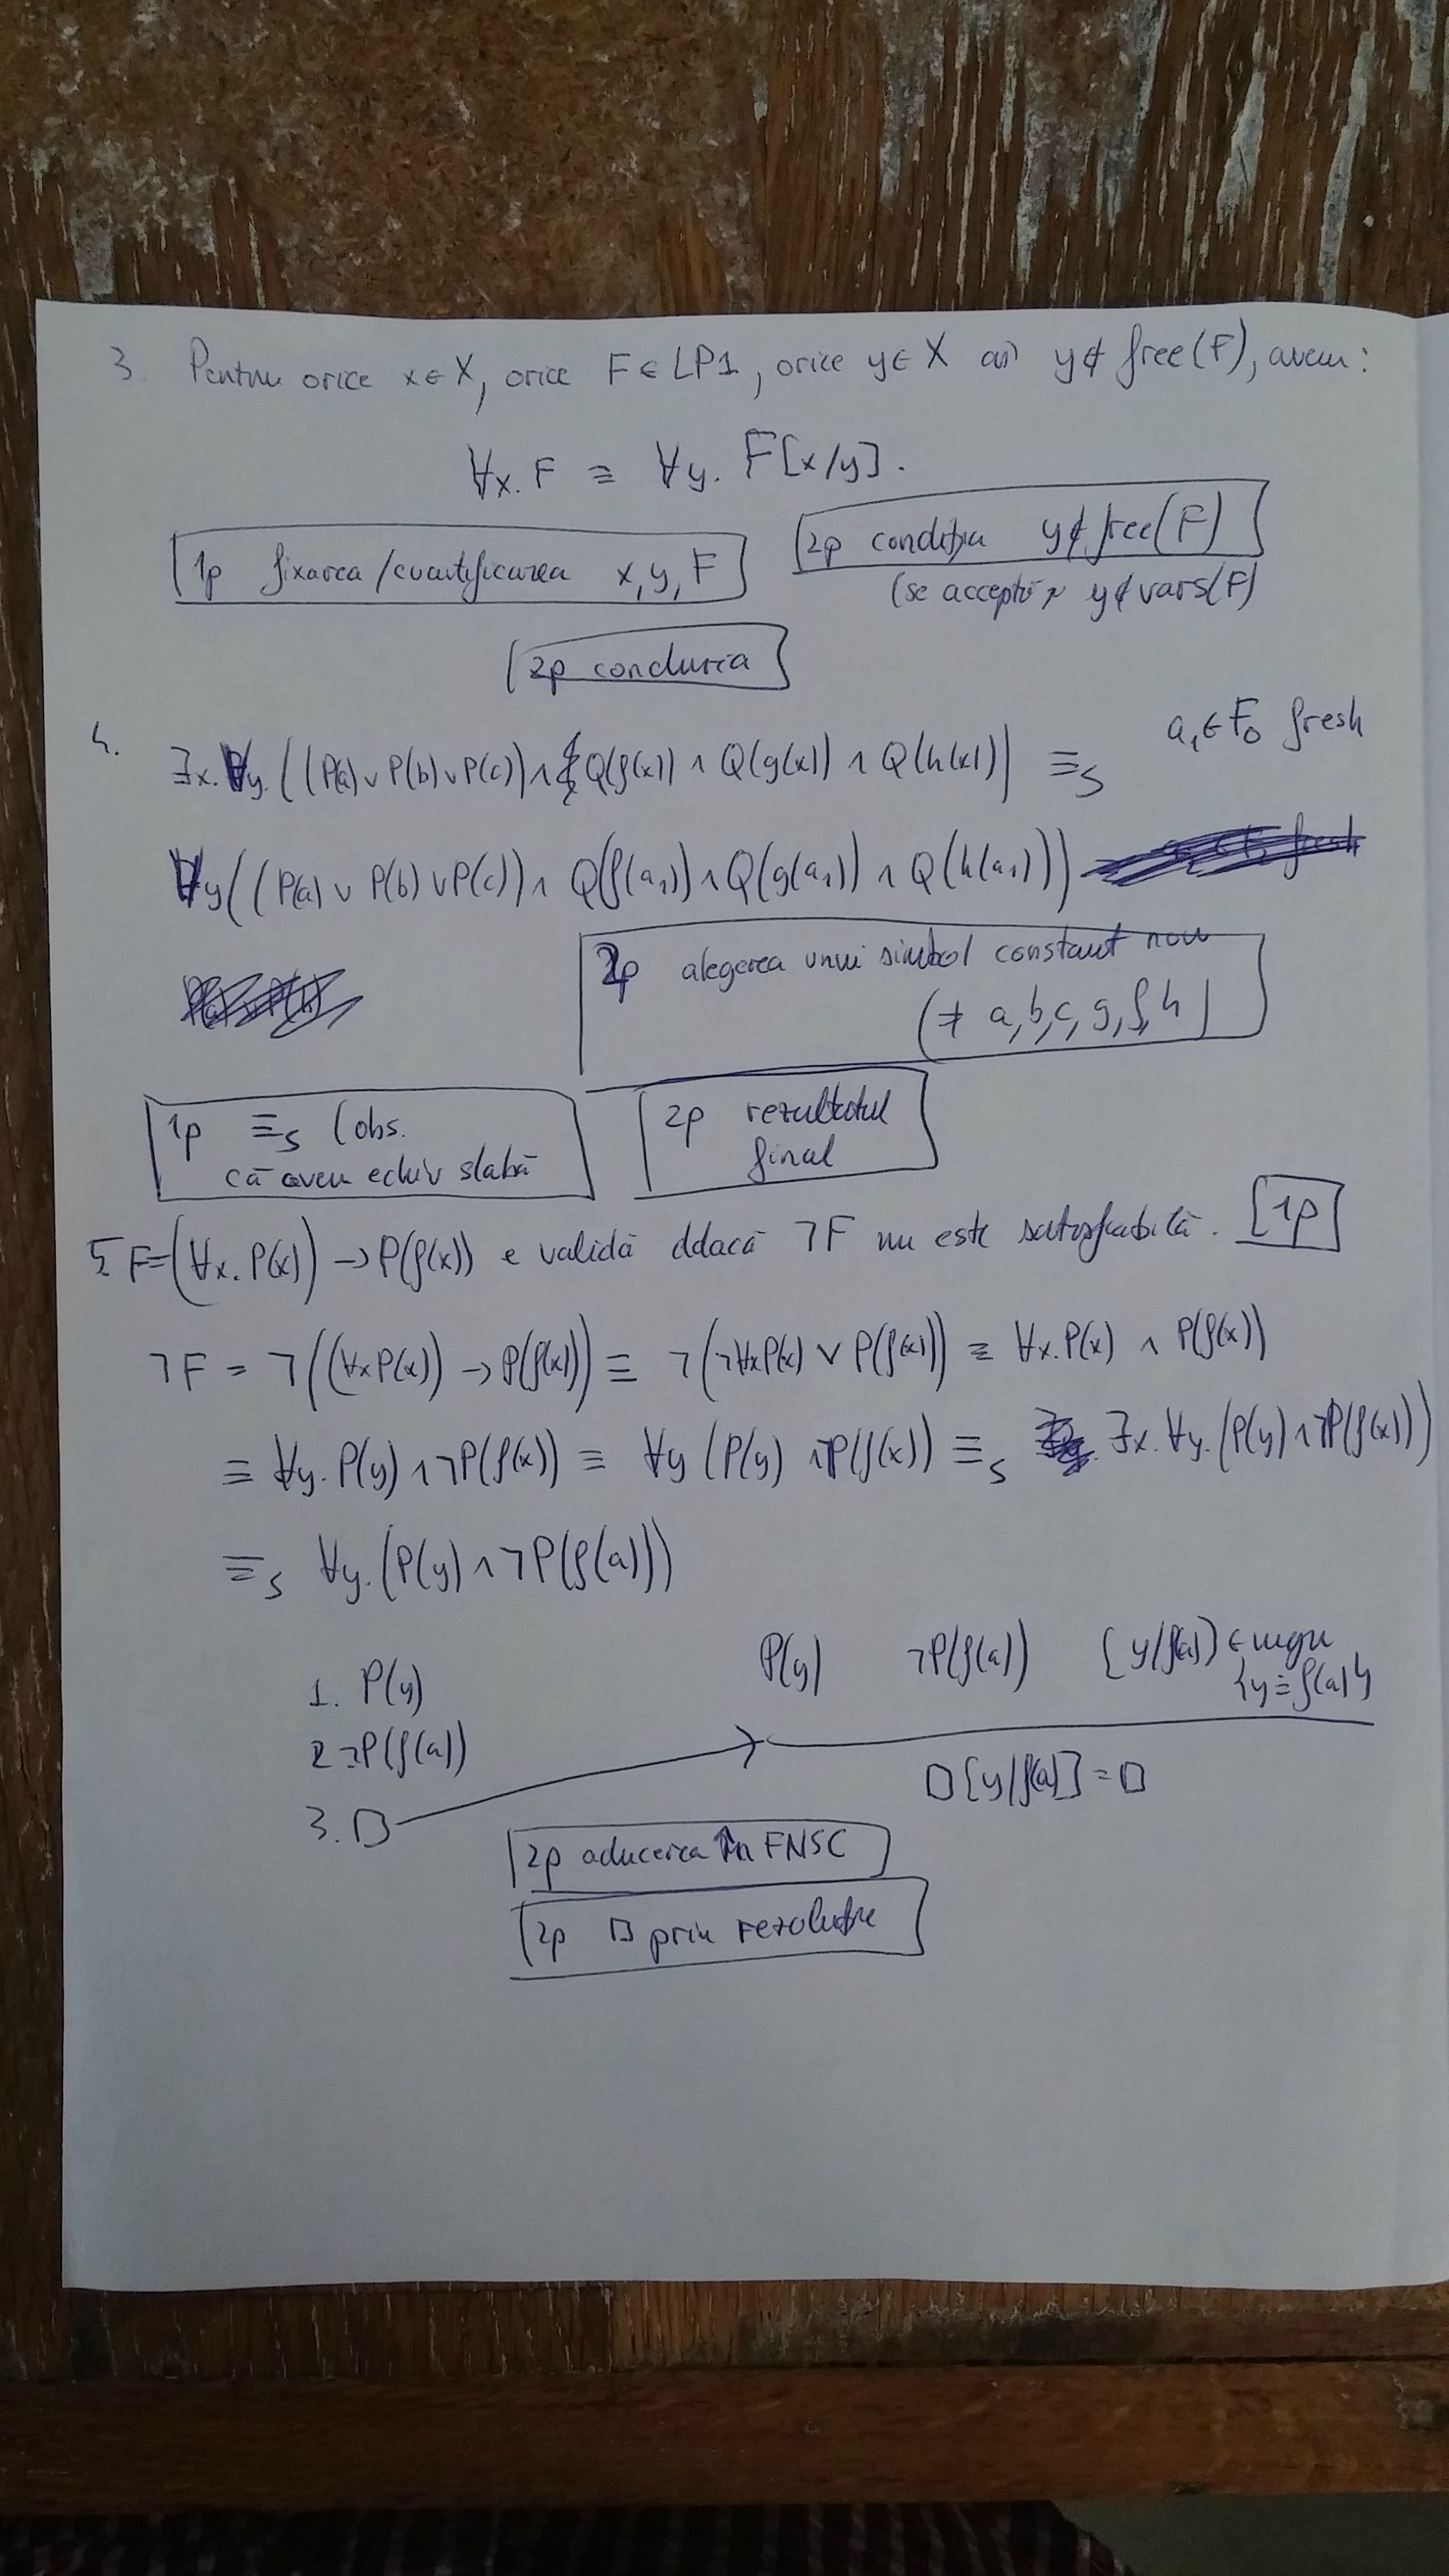 3. Pentru orice x∈X, orice F∈LP1, orice y∈X aî y∉free(F), avem:
∀x.F ≡ ∀y. F[x/y].
1p fixarea/cuantificarea x,y,F
2p condiția y∉free(F)
(se acceptă și y∉vars(F)
2p concluzia
4. ∃x.∀y.((P(a)∨P(b)∨P(c))∧Q(f(x))∧Q(g(x))∧Q(h(x))) ≡s a₁∈F₀ fresh
∀y((P(a)∨P(b)∨P(c))∧Q(f(a₁))∧Q(g(a₁))∧Q(h(a₁)))
2p alegerea unui simbol constant nou
(≠ a,b,c,g,f,h)
1p ≡s (obs.
că avem echiv slabă
2p rezultatul
final
5. F=(∀x.P(x))→P(f(x)) e validă ddacă ¬F nu este satisfiabilă. 1p
¬F = ¬((∀xP(x))→P(f(x))) ≡ ¬(¬∀xP(x)∨P(f(x))) ≡ ∀x.P(x)∧P(f(x))
≡ ∀y.P(y)∧¬P(f(x)) ≡ ∀y(P(y)∧¬P(f(x))) ≡s ∃x.∀y.(P(y)∧¬P(f(x)))
≡s ∀y.(P(y)∧¬P(f(a)))
1. P(y)
2. ¬P(f(a))
3. □
P(y) ¬P(f(a)) {y/f(a)}∈mgu
{y≐f(a)}
□[y/f(a)]=□
2p aducerea în FNSC
2p □ prin rezoluție